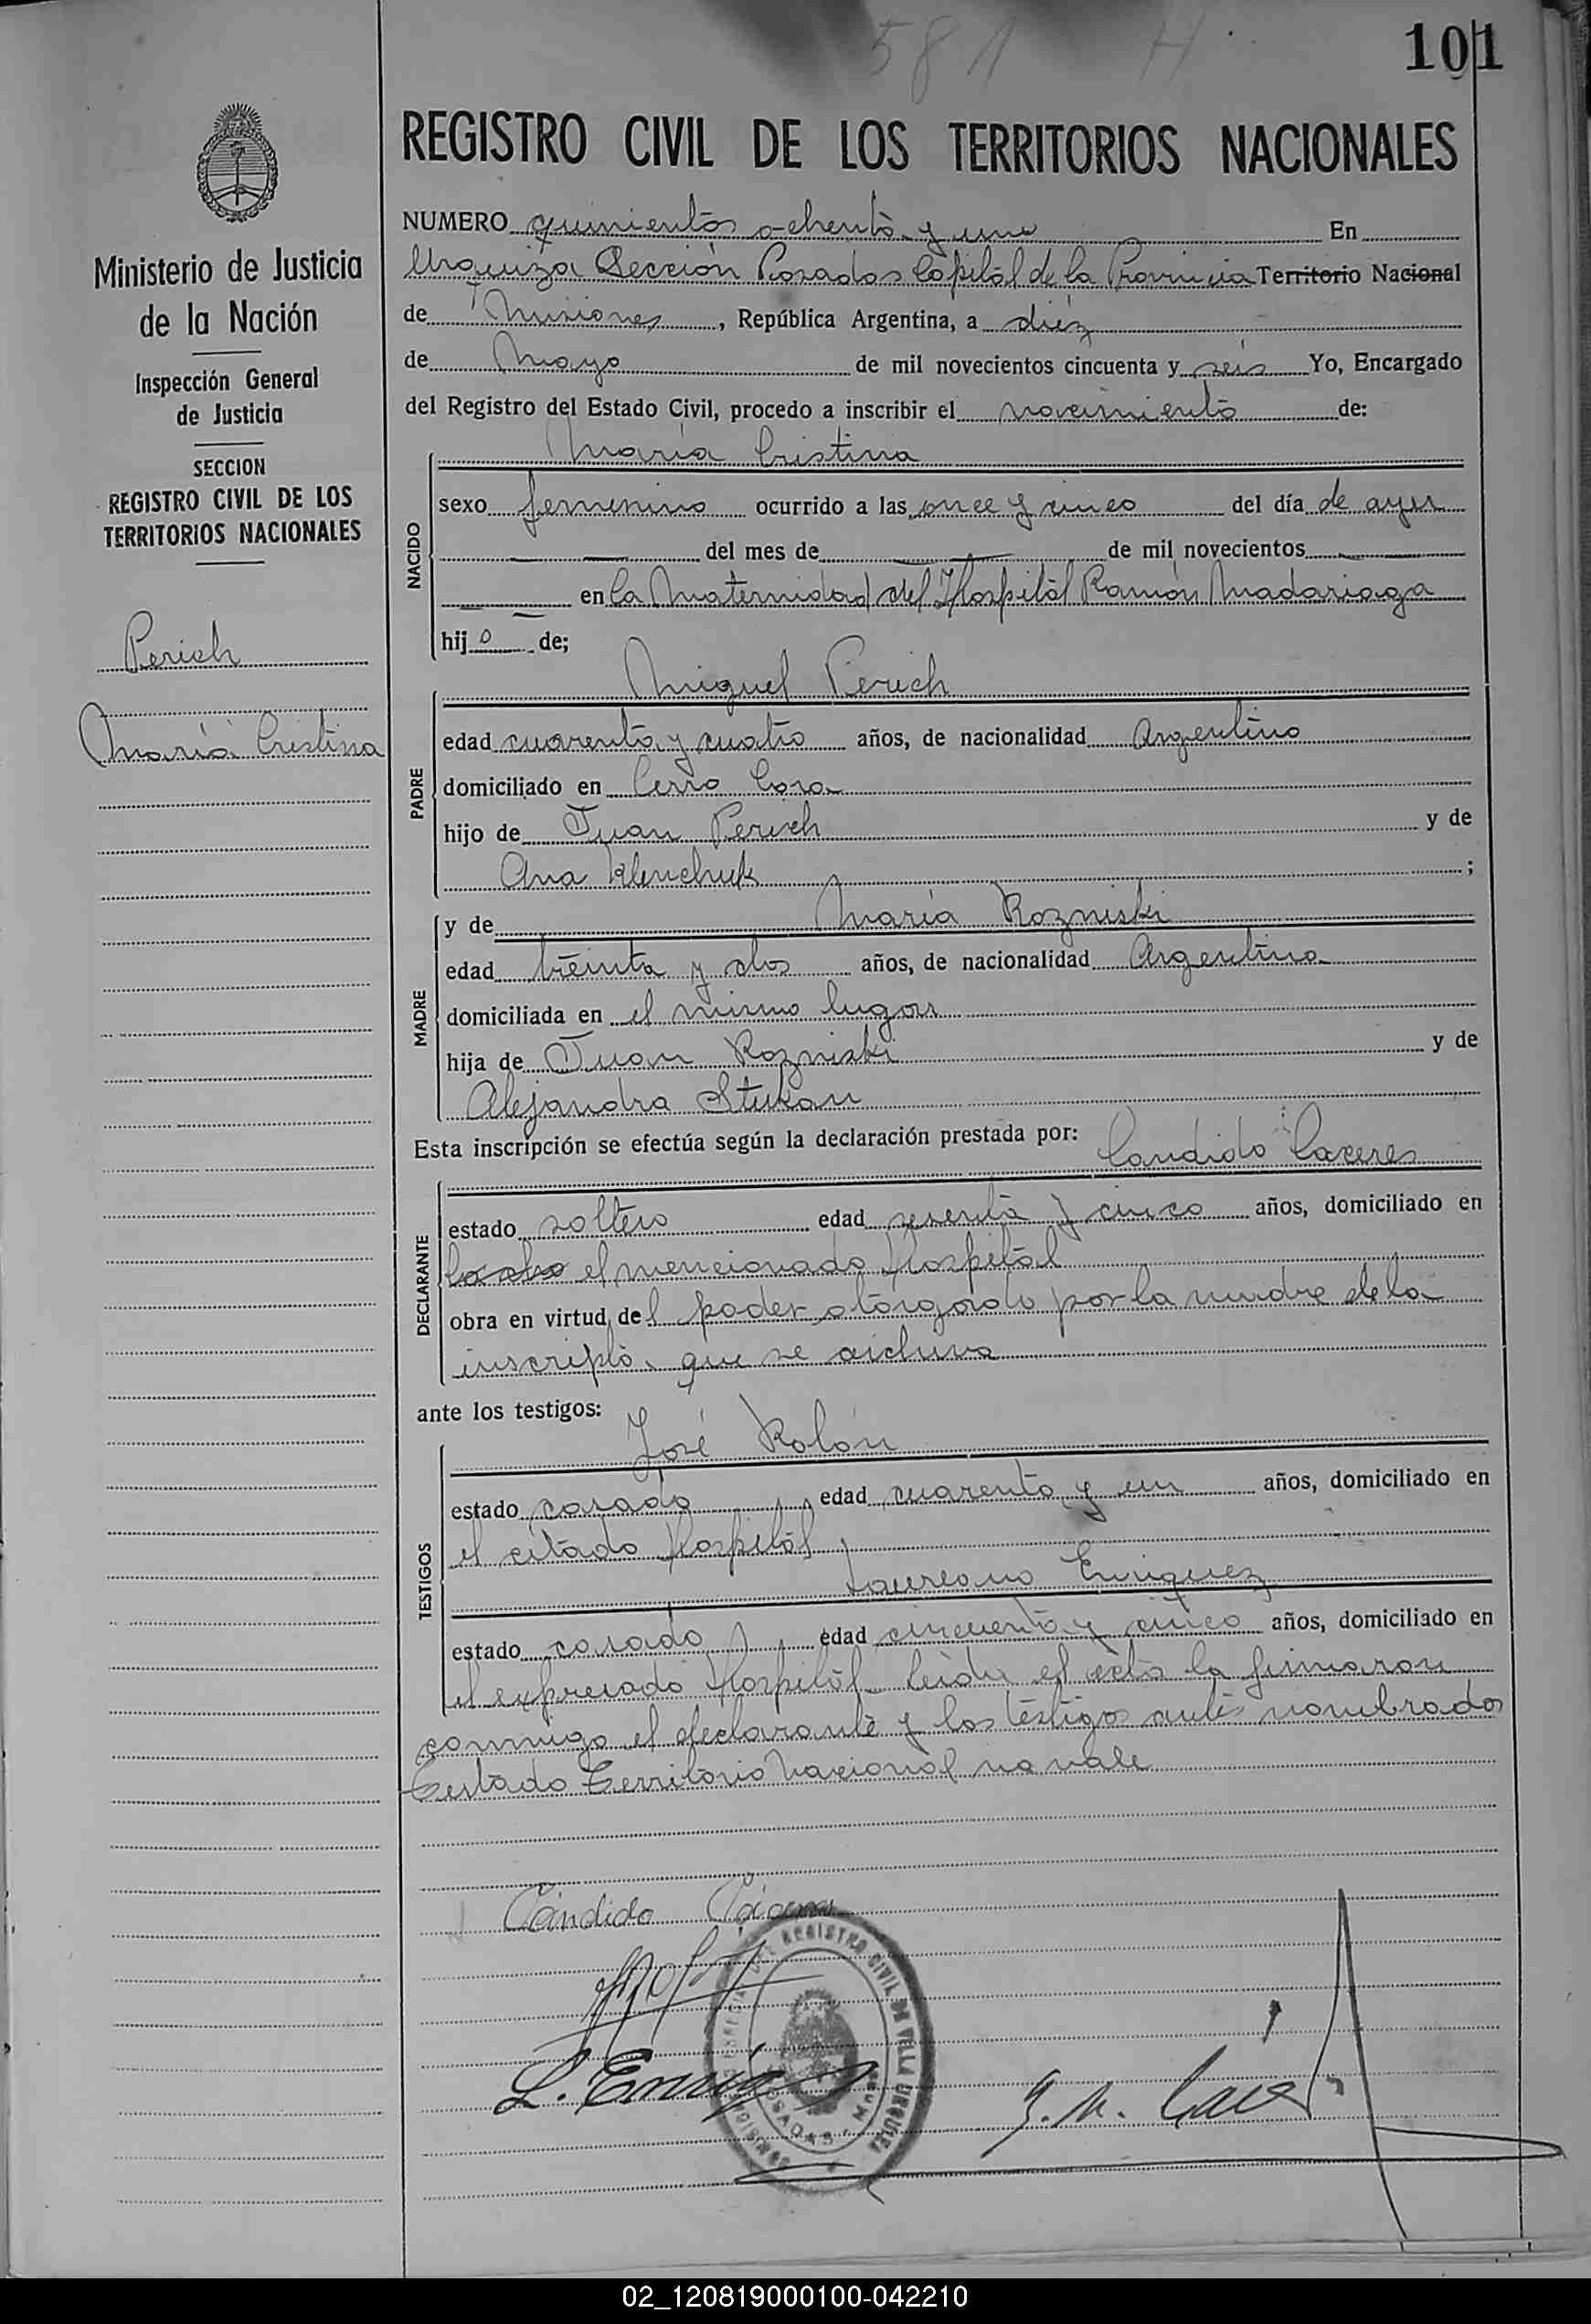 581 H
101
REGISTRO CIVIL DE LOS TERRITORIOS NACIONALES
Ministerio de Justicia
de la Nación
Inspección General
de Justicia
SECCION
REGISTRO CIVIL DE LOS
TERRITORIOS NACIONALES
Perich
María Cristina
NUMERO quinientos ochenta y uno En
Urquiza Sección Posadas Capital de la Provincia Territorio Nacional
de Misiones, República Argentina, a diez
de Mayo de mil novecientos cincuenta y seis Yo, Encargado
del Registro del Estado Civil, procedo a inscribir el nacimiento de:
María Cristina
NACIDO
sexo femenino ocurrido a las once y cinco del día de ayer
del mes de de mil novecientos
en la Maternidad del Hospital Ramón Madariaga
hij a de;
Miguel Perich
PADRE
edad cuarenta y cuatro años, de nacionalidad Argentino
domiciliado en Cerro Cora
hijo de Juan Perich y de
Ana Klenchuk ;
MADRE
y de María Rozniski
edad treinta y dos años, de nacionalidad Argentina
domiciliada en el mismo lugar
hija de Juan Rozniski y de
Alejandra Stukan
Esta inscripción se efectúa según la declaración prestada por: Candido Caceres
DECLARANTE
estado soltero edad sesenta y cinco años, domiciliado en
el mencionado Hospital
obra en virtud del poder otorgado por la madre de la
inscripta, que se archiva
ante los testigos:
José Rolón
TESTIGOS
estado casado, edad cuarenta y un años, domiciliado en
el citado Hospital,
Laureano Enriquez
estado casado, edad cincuenta y cinco años, domiciliado en
el expresado Hospital leida el acta la firmaron
conmigo el declarante y los testigos antes nombrados
Testado Territorio Nacional no vale
Cándido Cáceres
L. Enriquez
REGISTRO CIVIL DE VILLA URQUIZA
POSADAS
02_120819000100-042210